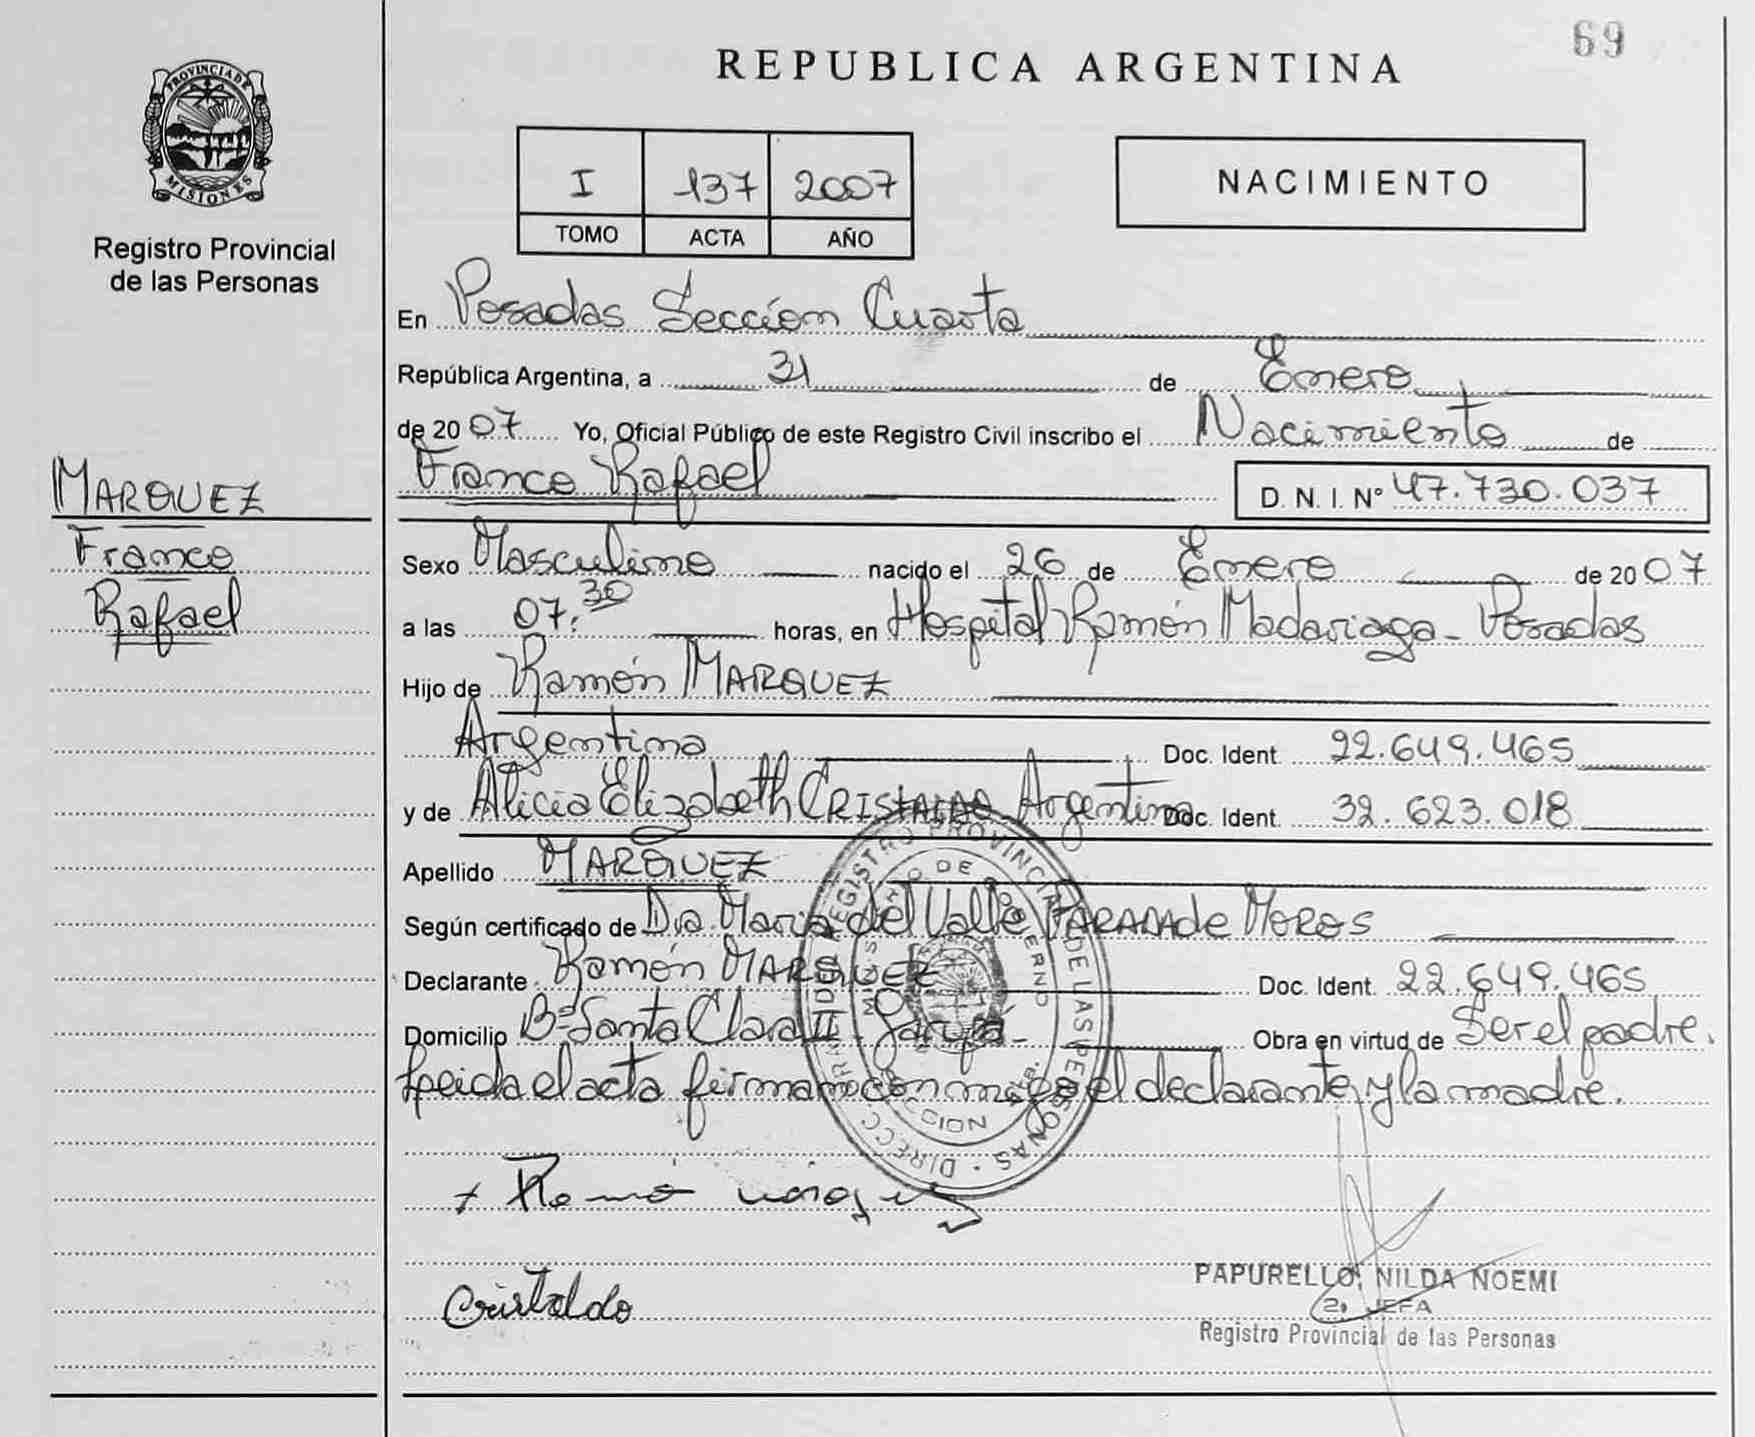 69
REPUBLICA ARGENTINA
PROVINCIA DE MISIONES
Registro Provincial
de las Personas
I 137 2007
TOMO ACTA AÑO
NACIMIENTO
En Posadas Sección Cuarta
República Argentina, a 31 de Enero
de 2007 Yo, Oficial Público de este Registro Civil inscribo el Nacimiento de
Franco Rafael
D. N. I. Nº 47.730.037
MARQUEZ
Franco
Rafael
Sexo Masculino nacido el 26 de Enero de 2007
a las 07:30 horas, en Hospital Ramón Madariaga - Posadas
Hijo de Ramón MARQUEZ
Argentino Doc. Ident. 22.649.465
y de Alicia Elizabeth CRISTALDO Argentina Doc. Ident. 32.623.018
Apellido MARQUEZ
Según certificado de Dra. Maria del Valle de Moros
Declarante Ramón MARQUEZ Doc. Ident. 22.649.465
Domicilio Bº Santa Clara II. Garupá - Obra en virtud de Ser el padre.
Leida el acta firman conmigo el declarante y la madre.
REGISTRO PROVINCIAL DE LAS PERSONAS - DIRECC
Ramó
Cristaldo
PAPURELLO, NILDA NOEMI
2º JEFA
Registro Provincial de las Personas